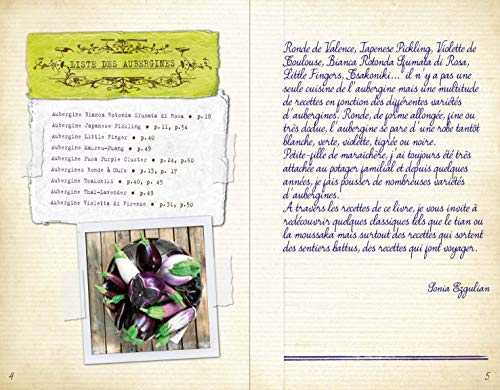 LISTE DES AUBERGINES
Aubergine Bianca Rotonda Sfumata di Rosa • p.18
Aubergine Japanese Pickling • p.11, p.54
Aubergine Little Finger • p.40
Aubergine • p.49
Aubergine Pusa Purple Cluster • p.26, p.60
Aubergines Ronde à Œufs • p.13, p.17
Aubergine Tsakoniki • p.40, p.45
Aubergine Thai-Lavender • p.43
Aubergine Violetta di Firenze • p.31, p.50
4
Ronde de Valence, Japenese Pickling, Violette de
Toulouse, Bianca Rotonda Sfumata di Rosa,
Little Fingers, Tsakoniki... il n'y a pas une
seule cuisine de l'aubergine mais une multitude
de recettes en fonction des différentes variétés
d'aubergines. Ronde, de forme allongée, fine ou
très dodue, l'aubergine se pare d'une robe tantôt
blanche, verte, violette, tigrée ou noire.
Petite-fille de maraîchère, j'ai toujours été très
attachée au potager familial et depuis quelques
années, je fais pousser de nombreuses variétés
d'aubergines.
A travers les recettes de ce livre, je vous invite à
redécouvrir quelques classiques tels que le tian ou
la moussaka mais surtout des recettes qui sortent
des sentiers battus, des recettes qui font voyager.
Sonia Ezgulian
5